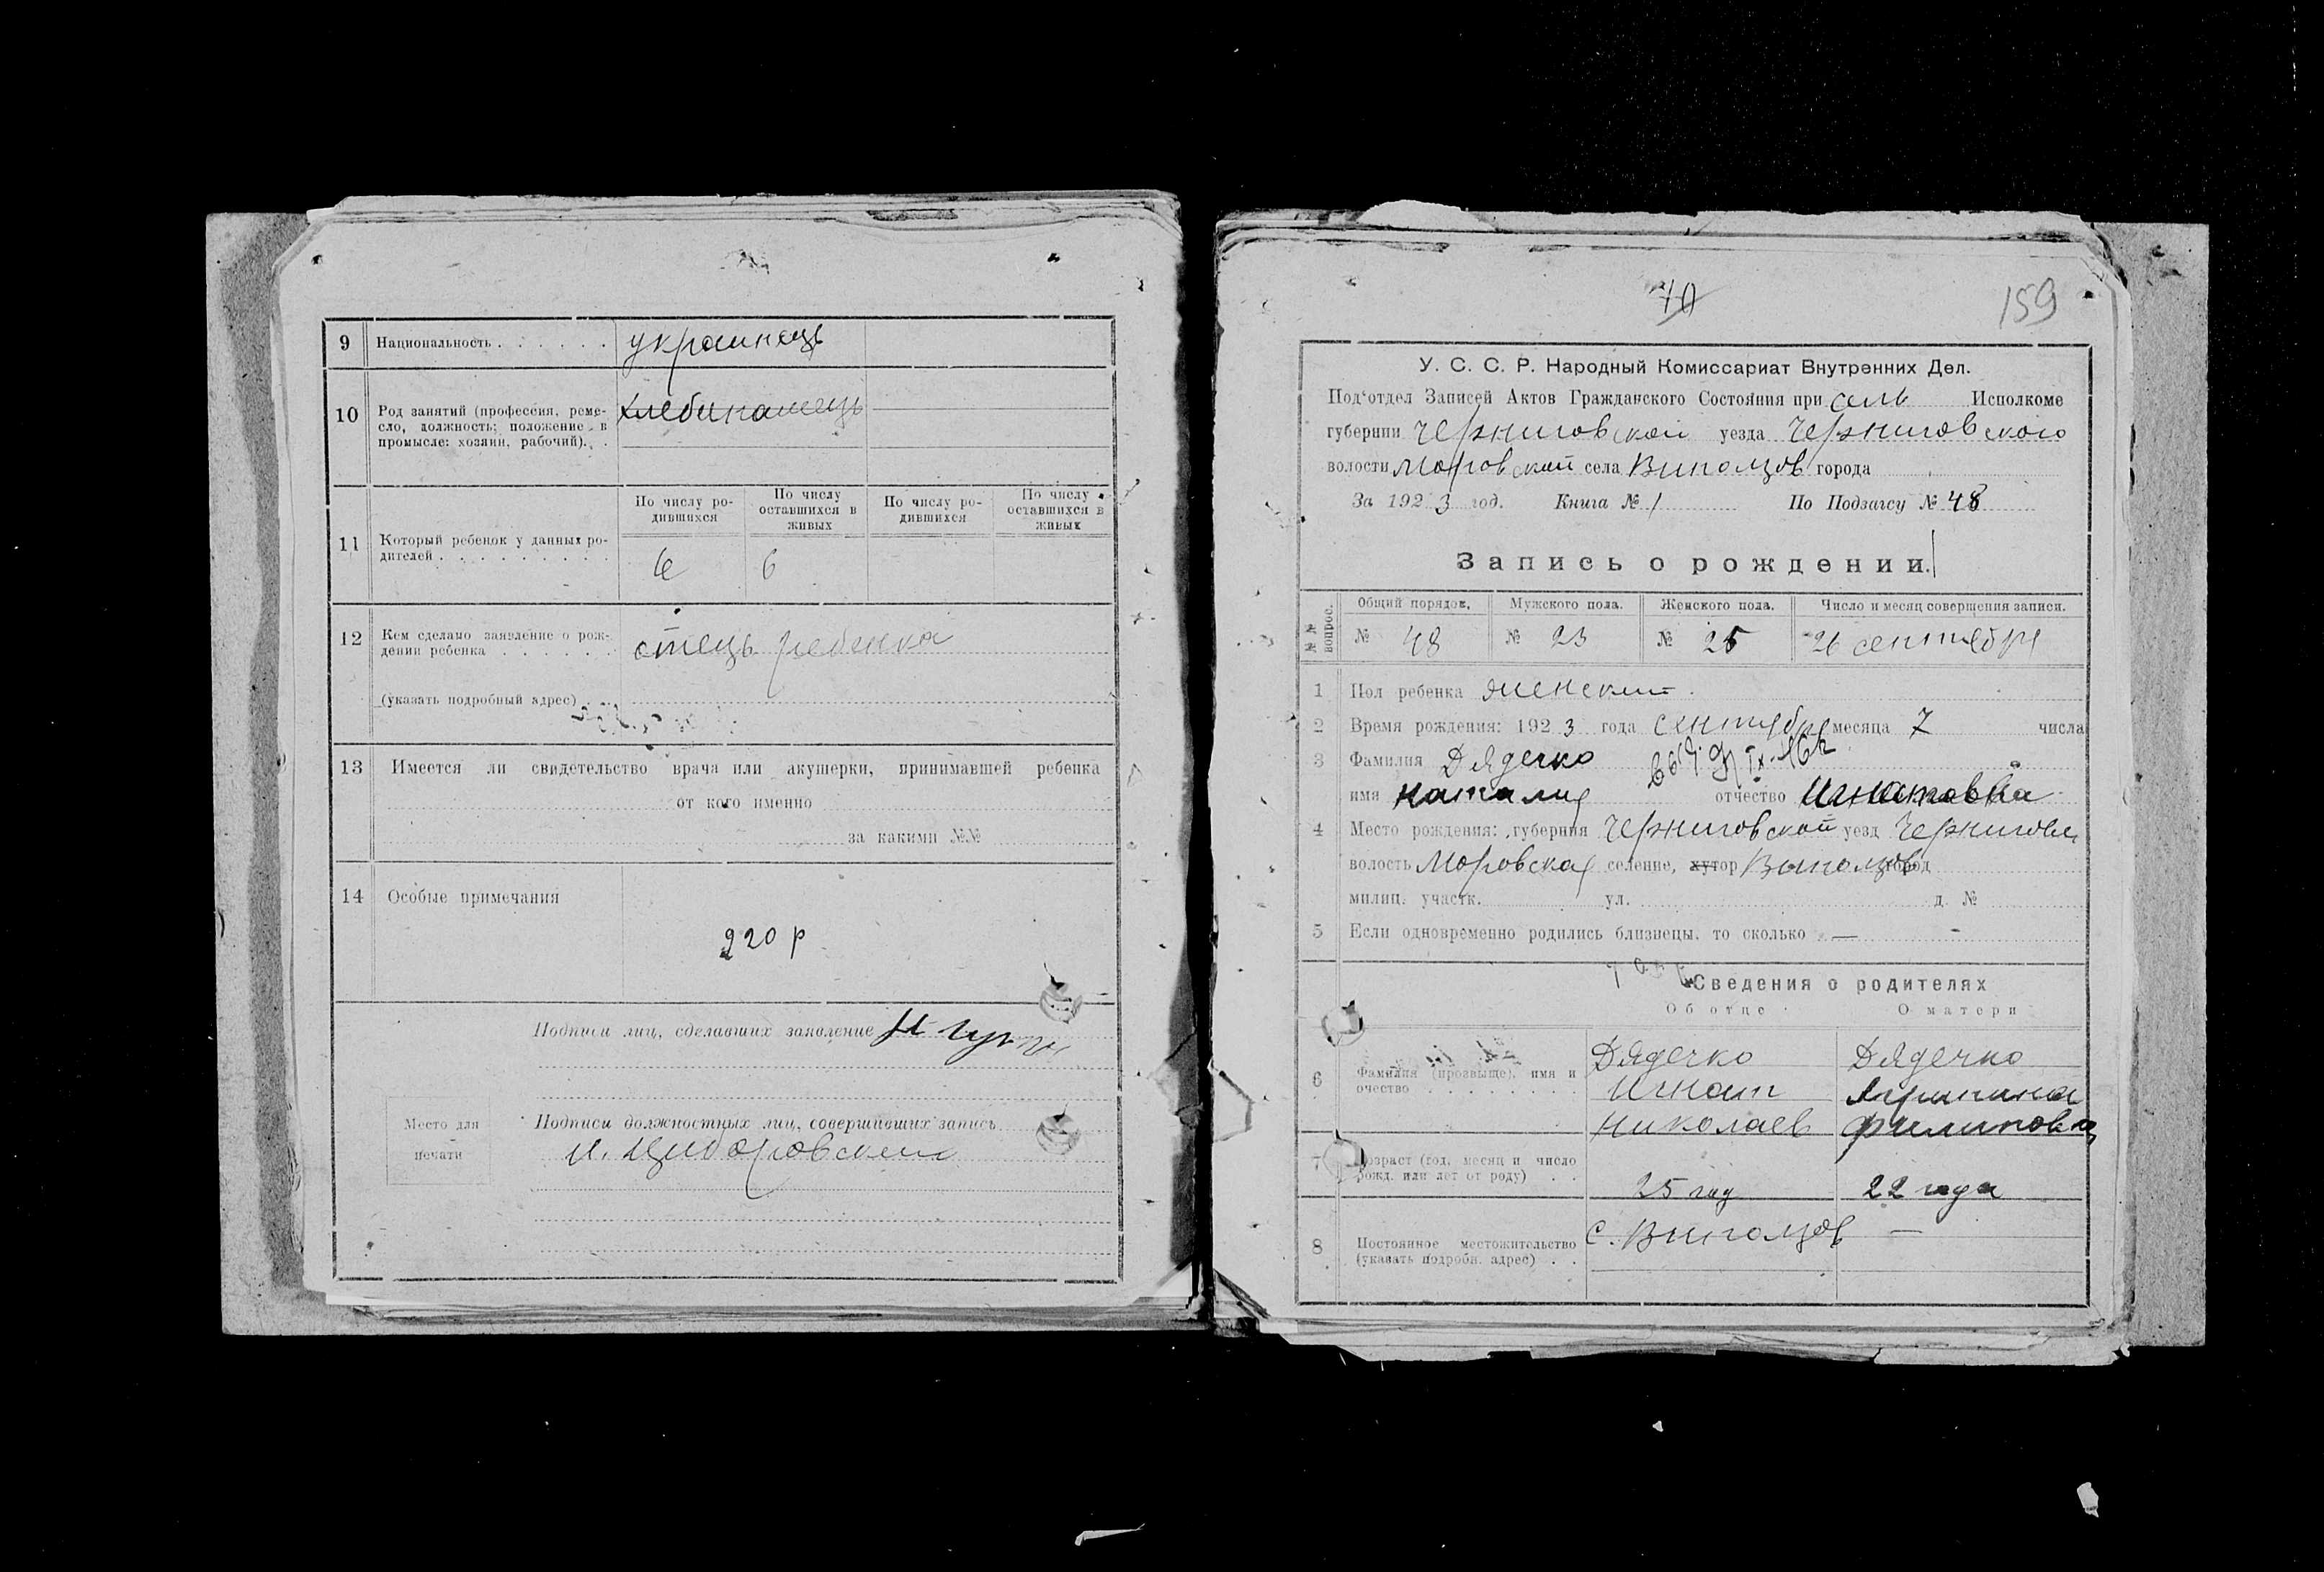 9 Национальность . . . . . . украинець
10 Род занятий (профессия, реме-
сло, должность; положение в
промысле: хозяин, рабочий). .
хлебипашець
11 Который ребенок у данных ро-
дителей . . . . . . . . .
По числу ро-
дившихся
По числу
оставшихся в
живых
По числу ро-
дившихся
По числу
оставшихся в
живых
6 6
12 Кем сделано заявление о рож-
дении ребенка . . . . . . отець ребенка
(указать подробный адрес)
13 Имеется ли свидетельство врача или акушерки, принимавшей ребенка
от кого именно
за какими №№
14 Особые примечания
220 р
Подписи лиц, сделавших заявление
Место для
печати
Подписи должностных лиц, совершивших запись
70 159
У. С. С. Р. Народный Комиссариат Внутренних Дел.
Под'отдел Записей Актов Гражданского Состояния при сель Исполкоме
губернии Черниговской уезда Черниговского
волости Моровской села Виползов города
За 1923 год. Книга № 1 По Подзагсу № 48
Запись о рождении.
№№ вопрос.
Общий порядок. Мужского пола. Женского пола. Число и месяц совершения записи.
№ 48 № 23 № 25 26 сентября
1 Пол ребенка женский
2 Время рождения: 1923 года сентября месяца 7 числа
3 Фамилия Дядечко
имя Наталия отчество Игнатовна
4 Место рождения: губерния Черниговской уезд Чернигов
волость Моровская селение, хутор Виползов город
милиц. участк. ул. д. №
5 Если одновременно родились близнецы, то сколько —
Сведения о родителях
Об отце О матери
6 Фамилия (прозвыще), имя и
очество . . . . . . . .
Дядечко Дядечко
Игнат Агрипина
Николаев Филиповна
7 Возраст (год, месяц и число
рожд. или лет от роду) . .
25 год 22 года
8 Постоянное местожительство
(указать подробн. адрес) . .
с. Виползов —